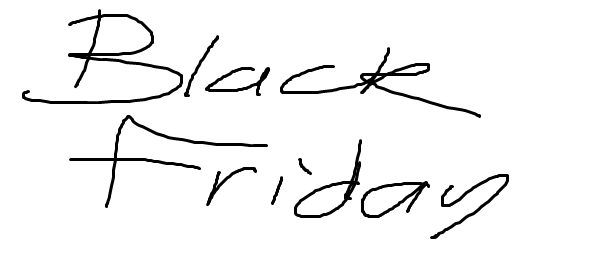 Black
Friday